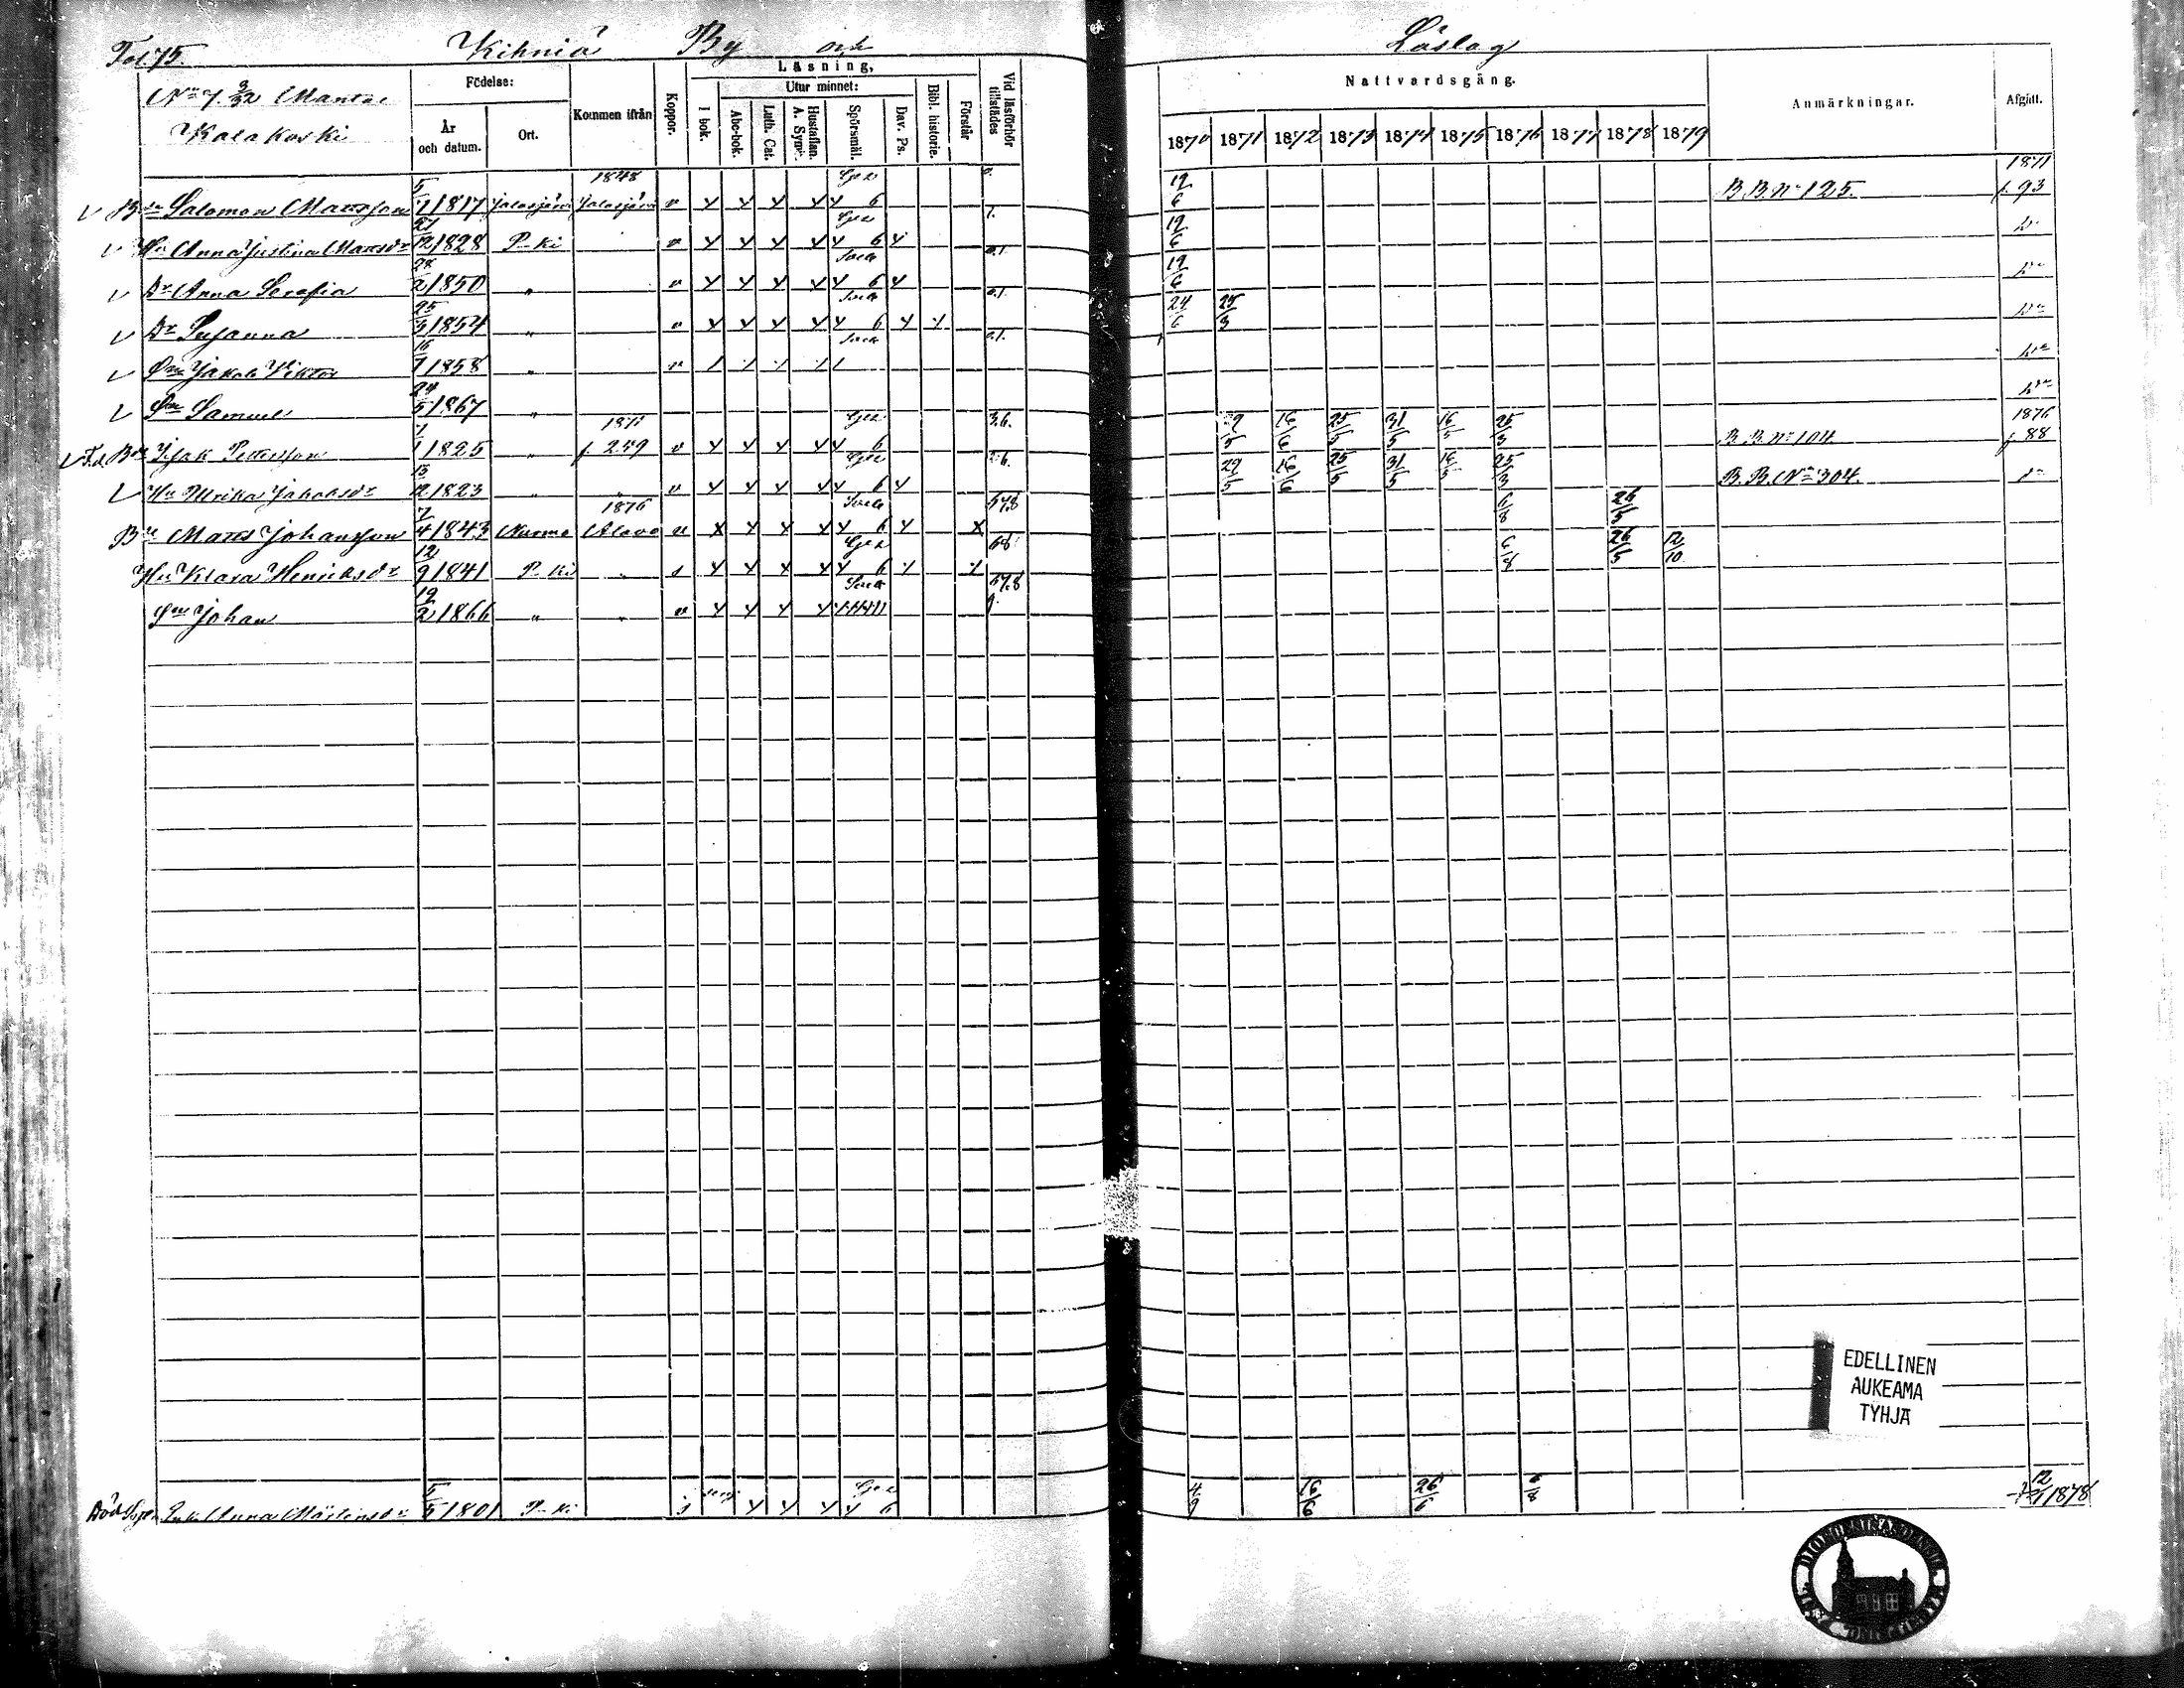 Fol 75. Kihniä By och Läslag
No 7. 3/32 Mantal
Kalakoski
Födelse:
År och datum.
Ort.
Kommen ifrån
Koppor.
Läsning,
I bok.
Utur minnet:
Abc-bok.
Luth. Cat.
Hustaflan. A. Symb.
Spörsmål.
Dav. Ps.
Bibl. historie.
Förstår
Vid läsförhör tillstädes
Nattvardsgång.
1870 1871 1872 1873 1874 1875 1876 1877 1878 1879
Anmärkningar.
Afgått.
Bde Salomon Mattsson 5/7 1817 Jalasjärvi 1848 Jalasjärvi v 6 19/6 B.B. No 125. 1871 f. 93
Hu Anna Justina Mattsdr 21/12 1828 P-ki v 6 19/6 Do
Dr Anna Serafia 28/2 1850 " v 6 19/6 Do
Dr Susanna 25/3 1854 " v 6 24/6 25/3 Do
Son Jakob Viktor 16/7 1858 " v Do
Son Samuel 24/5 1867 " Do
F.d. Bde Isak Pettersson 7/1 1825 " 1871 f. 249 v 6 3.6. 29/5 16/6 25/5 31/5 16/5 25/3 B.B. No 104 1876 f 88
Hu Ulrika Jakobsdr 13/12 1823 " " v 6 29/5 16/6 25/5 31/5 16/5 25/3 B.B. No 304. Do
Bde Matts Johansson 7/4 1843 Nurmo 1876 Alavo v 6 57.8 6/8 26/5
Hu Klara Henriksdr 12/9 1841 P-ki " 6 68 6/8 26/5 12/10
Son Johan 19/2 1866 " " v 57.8 9.
EDELLINEN
AUKEAMA
TYHJÄ
Död Enk. Anna Mårtensdr 5/5 1801 P-ki 6 4/9 16/6 26/6 6/8 1878